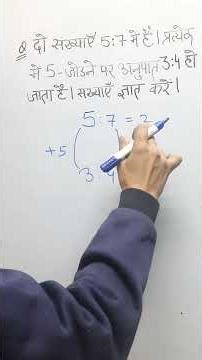 Q दो संख्याएँ 5:7 में हैं। प्रत्येक
में 5 जोडने पर अनुपात 3:4 हो
जाता है। संख्याएँ ज्ञात करें।
5:7 = 2
+5
3 4